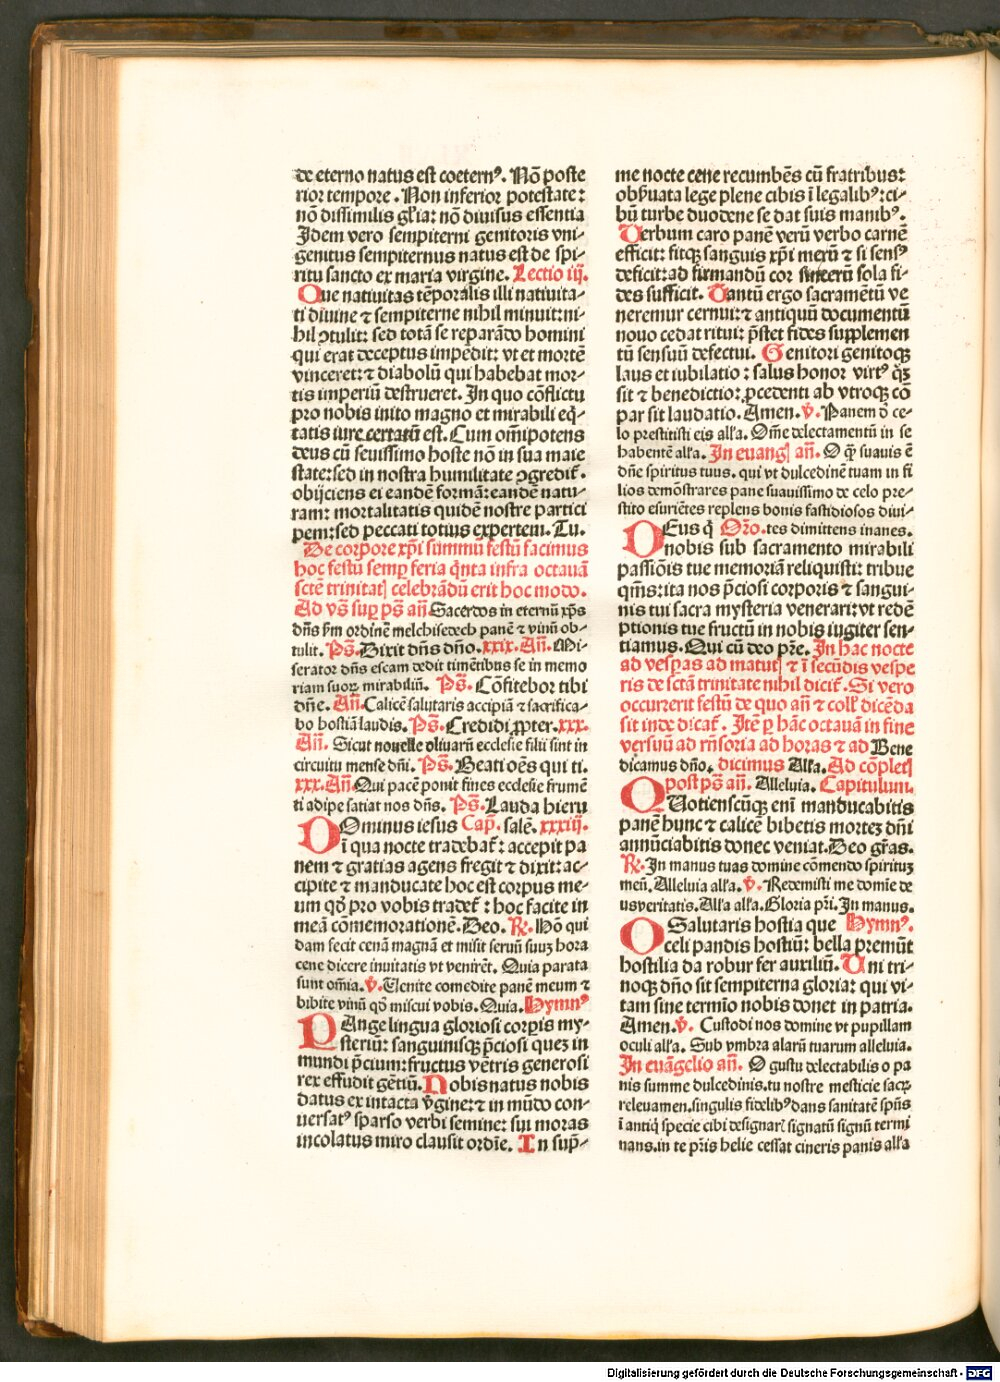 de eterno natus est coeternꝰ. Nō poste
rior tempore. Non inferior potestate:
nō dissimilis gl̄ia: nō diuisus essentia
Idem vero sempiterni genitoris vni-
genitus sempiternus natus est de spi-
ritu sancto ex maria virgine. Lectio iij.
Que natiuitas tēporalis illi natiuita-
ti diuine ⁊ sempiterne nihil minuit: ni-
hil ꝯtulit: sed totā se reparādo homini
qui erat deceptus impēdit: vt et mortē
vinceret: ⁊ diabolū qui habebat mor-
tis imperiū destrueret. In quo cōflictu
pro nobis inito magno et mirabili eq̄-
tatis iure certatū est. Cum om̄ipotens
deus cū seuissimo hoste nō in sua maie
state: sed in nostra humilitate ꝯgredit᷑.
obijciens ei eandē formā: eandē natu-
ram: mortalitatis quidē nostre partici
pem: sed peccati totius expertem. Tu.
De corpore xp̄i summū festū facimus
hoc festū semꝑ feria q̄nta infra octauā
sctē trinitat] celebrādū erit hoc modo.
Ad vs̄ suꝑ ps̄ an̄ Sacerdos in eternū xp̄s
dn̄s ẜm ordinē melchisedech panē ⁊ vinū ob-
tulit. Ps̄. Dixit dn̄s dn̄o. xxix. An̄. Mi-
serator dn̄s escam dedit timētibus se in memo
riam suoꝝ mirabiliū. Ps̄. Cōfitebor tibi
dn̄e. An̄. Calicē salutaris accipiā ⁊ sacrifica-
bo hostiā laudis. Ps̄. Credidi ꝓpter. xxx.
An̄. Sicut nouelle oliuarū ecclesie filii sint in
circuitu mense dn̄i. Ps̄. Beati oēs qui ti.
xxx. An̄. Qui pacē ponit fines ecclesie frumē
ti adipe satiat nos dn̄s. Ps̄. Lauda hieru
DOminus iesus Cap̄. salē. xxxiij.
ī qua nocte tradebat᷑: accepit pa
nem ⁊ gratias agens fregit ⁊ dixit: ac-
cipite ⁊ manducate hoc est corpus me-
um qd̄ pro vobis tradet᷑: hoc facite in
meā cōmemorationē. Deo. R. Hō qui
dam fecit cenā magnā et misit seruū suuꝫ hora
cene dicere inuitatis vt venirēt. Quia parata
sunt om̄ia. v̄. Uenite comedite panē meum ⁊
bibite vinū qd̄ miscui vobis. Quia. Hymnꝰ
PAnge lingua gloriosi corꝑis my-
steriū: sanguinisqꝫ p̄ciosi queꝫ in
mundi p̄cium: fructus vētris generosi
rex effudit gētiū. Nobis natus nobis
datus ex intacta v̄gine: ⁊ in mūdo con-
uersatꝰ sparso verbi semine: sui moras
incolatus miro clausit ordīe. In sup̄-
me nocte cene recumbēs cū fratribus:
obẜuata lege plene cibis ī legalibꝰ: ci-
bū turbe duodene se dat suis manibꝰ.
Verbum caro panē verū verbo carnē
efficit: fitqꝫ sanguis xp̄i merū ⁊ si sensꝰ
deficit: ad firmandū cor sincerū sola fi-
des sufficit. Tantū ergo sacramētū ve
neremur cernui: ⁊ antiquū documentū
nouo cedat ritui: p̄stet fides supplemen
tū sensuū defectui. Genitori genitoqꝫ
laus et iubilatio: salus honor virtꝰ q̄ꝫ
sit ⁊ benedictio: ꝓcedenti ab vtroqꝫ cō
par sit laudatio. Amen. v̄. Panem d̄ ce-
lo prestitisti eis all'a. Om̄e delectamentū in se
habentē all'a. In euang] an̄. O q̄ꝫ suauis ē
dn̄e spiritus tuus. qui vt dulcedinē tuam in fi
lios demōstrares pane suauissimo de celo pre-
stito esuriētes replens bonis fastidiosos diui-
DEus q̄ Orō. tes dimittens inanes.
nobis sub sacramento mirabili
passiōis tue memoriā reliquisti: tribue
qm̄s: ita nos p̄ciosi corporis ⁊ sangui-
nis tui sacra mysteria venerari: vt redē
ptionis tue fructū in nobis iugiter sen-
tiamus. Qui cū deo pr̄e. In hac nocte
ad vesꝑas ad matut] ⁊ ī secūdis vespe
ris de sctā trinitate nihil dicit᷑. Si vero
occurrerit festū de quo an̄ ⁊ coll' dicēda
sit inde dicat᷑. Itē ꝑ hāc octauā in fine
versuū ad rn̄soria ad horas ⁊ ad Bene
dicamus dn̄o. dicimus All'a. Ad cōplet]
post ps̄ an̄. Alleluia. Capitulum.
QUotienscūqꝫ eni manducabitis
panē hunc ⁊ calicē bibetis morteꝫ dn̄i
annūciabitis donec veniat. Deo gr̄as.
R. In manus tuas domine cōmendo spirituꝫ
meū. Alleluia all'a. v̄. Redemisti me domīe de
us veritatis. All'a all'a. Gloria pr̄i. In manus.
O Salutaris hostia que Hymnꝰ.
celi pandis hostiū: bella premūt
hostilia da robur fer auxiliū. Uni tri-
noqꝫ dn̄o sit sempiterna gloria: qui vi-
tam sine termīo nobis donet in patria.
Amen. v̄. Custodi nos domine vt pupillam
oculi all'a. Sub vmbra alarū tuarum alleluia.
In euāgelio an̄. O gustu delectabilis o pa
nis summe dulcedinis. tu nostre mesticie sacꝝ
releuamen. singulis fidelibꝰ dans sanitatē sp̄us
ī antiq̄ specie cibi designari signatū signū termi
nans. in te pr̄is helie cessat cineris panis all'a
Digitalisierung gefördert durch die Deutsche Forschungsgemeinschaft - DFG